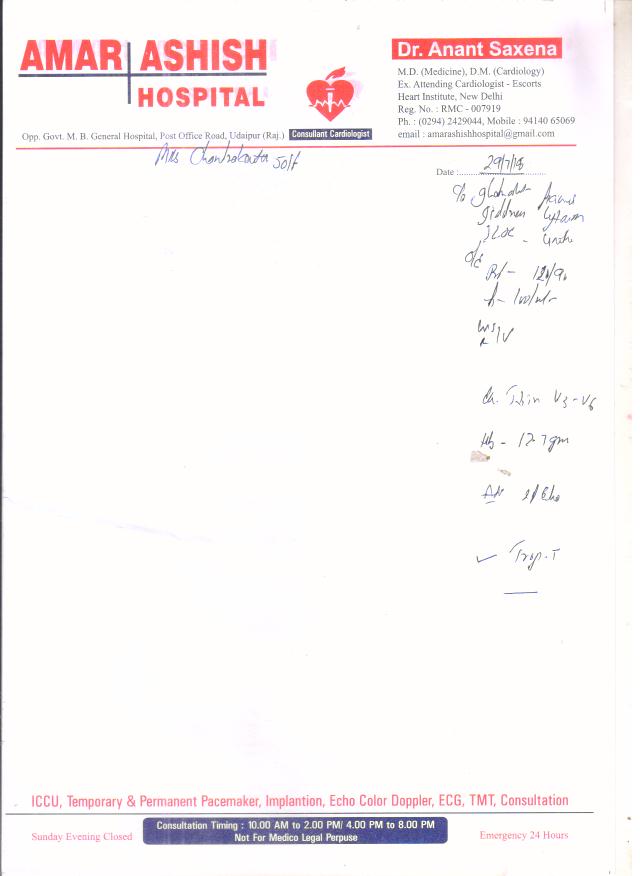 AMAR ASHISH
HOSPITAL
Opp. Govt. M. B. General Hospital, Post Office Road, Udaipur (Raj.) Consultant Cardiologist
Dr. Anant Saxena
M.D. (Medicine), D.M. (Cardiology)
Ex. Attending Cardiologist - Escorts
Heart Institute, New Delhi
Reg. No. : RMC - 007919
Ph. : (0294) 2429044, Mobile : 94140 65069
email : amarashishhospital@gmail.com
Mrs Chandrakanta 50/f
Date : 29/7/18
c/o
O/E
120/90
100/
V3-V6
Hb - 12.7gm
Adv Echo
✓ Trop-T
ICCU, Temporary & Permanent Pacemaker, Implantion, Echo Color Doppler, ECG, TMT, Consultation
Sunday Evening Closed
Consultation Timing : 10.00 AM to 2.00 PM/ 4.00 PM to 8.00 PM
Not For Medico Legal Perpuse
Emergency 24 Hours